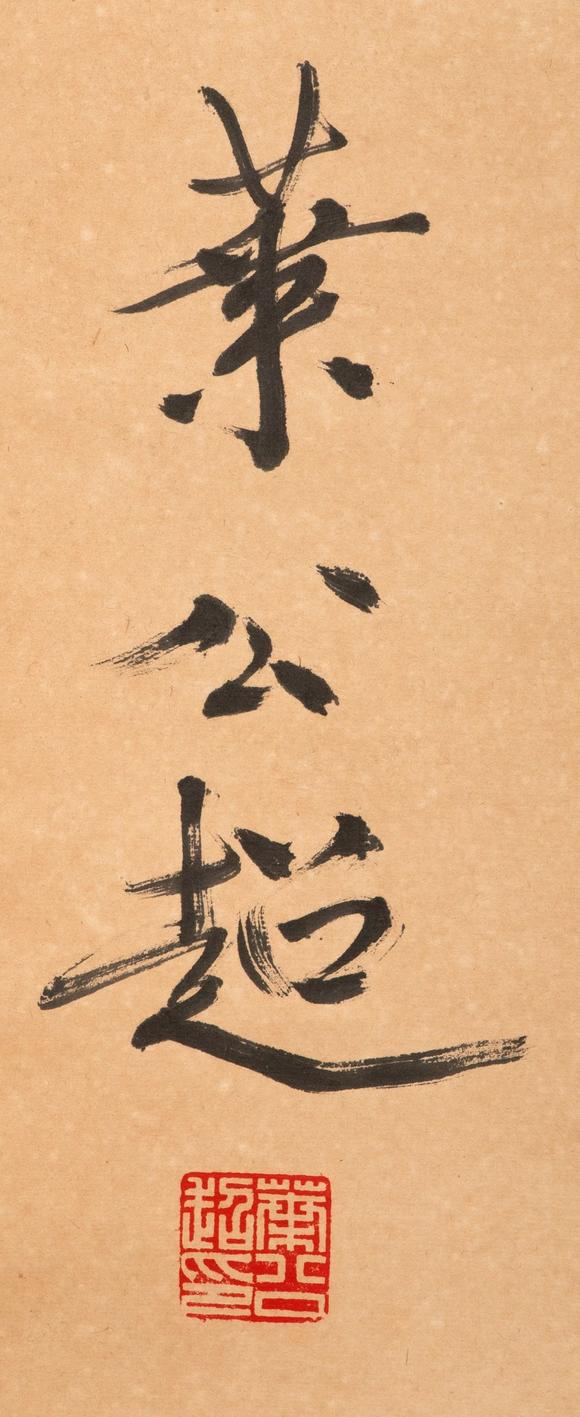 葉公超
葉公超印